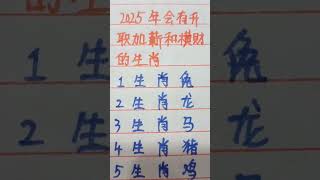 2025年会有升
职加薪和横财
的生肖
1生肖兔
2生肖龙
3生肖马
4生肖猪
5生肖鸡